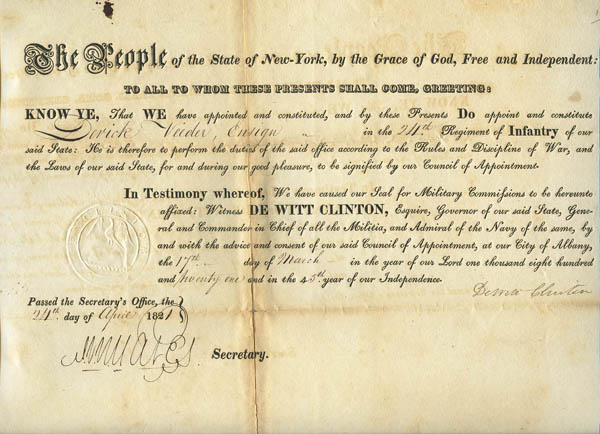 The People of the State of New-York, by the Grace of God, Free and Independent:
TO ALL TO WHOM THESE PRESENTS SHALL COME, GREETING:
KNOW YE, That WE have appointed and constituted, and by these Presents Do appoint and constitute
Veeder, Ensign in the 24th Regiment of Infantry of our
said State: He is therefore to perform the duties of the said office according to the Rules and Discipline of War, and
the Laws of our said State, for and during our good pleasure, to be signified by our Council of Appointment.
In Testimony whereof, We have caused our Seal for Military Commissions to be hereunto
affixed: Witness DE WITT CLINTON, Esquire, Governor of our said State, Gene-
ral and Commander in Chief of all the Militia, and Admiral of the Navy of the same, by
and with the advice and consent of our said Council of Appointment, at our City of Albany,
the 17th day of March in the year of our Lord one thousand eight hundred
and twenty one and in the 45th year of our Independence.
DeWitt Clinton
Passed the Secretary's Office, the
24th day of April 1821
Secretary.